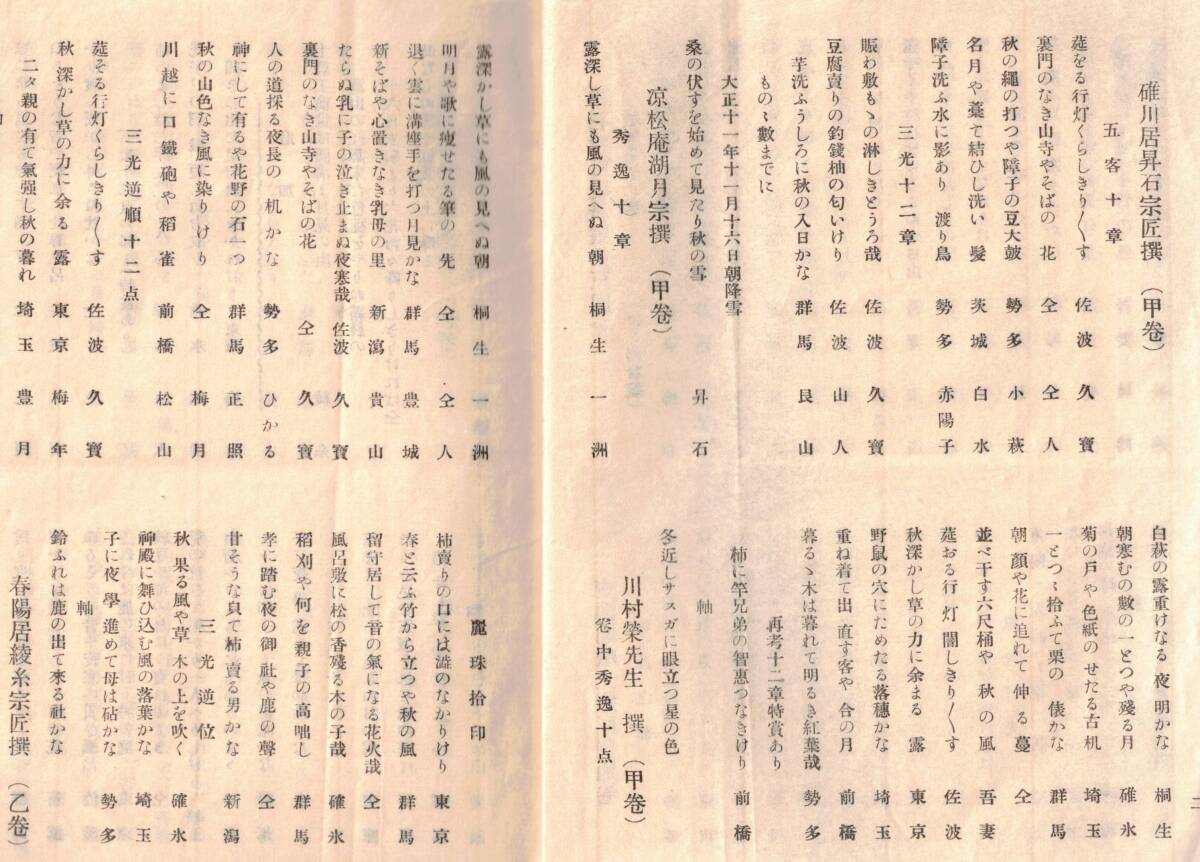 碓川居昇石宗匠撰 (甲卷)
五客十章
莚をる行灯くらしきり〲す 佐波 久寶
裏門のなき山寺やそばの花 仝 仝人
秋の繩の打つや障子の豆大皷 勢多 小萩
名月や藁て結ひし洗い髮 茨城 白水
障子洗ふ水に影あり 渡り鳥 勢多 赤陽子
三光十二章
賑わ敷もゝの淋しきとうろ哉 佐波 久寶
豆腐賣りの釣錢柚の匂いけり 佐波 山人
芋洗ふうしろに秋の入日かな 群馬 艮山
ものゝ數までに
大正十一年十一月十六日朝降雪
桑の伏すを始めて見たり秋の雪 昇石
凉松庵湖月宗撰 (甲卷)
秀逸十章
露深し草にも風の見へぬ朝 桐生 一洲
露深かし草にも風の見へぬ朝 桐生 一洲
明月や歌に瘦せたる筆の先 仝 仝人
退く雲に溝座手を打つ月見かな 群馬 豊城
新そばや心置きなき乳母の里 新瀉 貴山
たらぬ乳に子の泣き止まぬ夜寒哉 佐波 久寶
裏門のなき山寺やそばの花 仝 久寶
人の道探る夜長の机かな 勢多 ひかる
神にして有るや花野の石一つ 群馬 正照
秋の山色なき風に染りけり 仝 梅月
川越に口鐵砲や稻雀 前橋 松山
三光逆順十二点
莚そる行灯くらしきり〲す 佐波 久寶
秋深かし草の力に余る露 東京 梅年
二タ親の有て氣强し秋の暮れ 埼玉 豊月
白萩の露重けなる夜明かな 桐生
朝寒むの數の一とつや殘る月 碓氷
菊の戶や色紙のせたる古机 埼玉
一とつゝ拾ふて栗の俵かな 群馬
朝顏や花に追れて伸る蔓 仝
並べ干す六尺桶や秋の風 吾妻
莚おる行灯闇しきり〱す 佐波
秋深かし草の力に余まる露 東京
野鼠の穴にためたる落穗かな 埼玉
重ね着て出直す客や合の月 前橋
暮るゝ木は暮れて明るき紅葉哉 勢多
再考十二章特賞あり
柿に竿兄弟の智惠つなきけり 前橋
軸
冬近しサスガに眼立つ星の色
川村榮先生 撰 (甲卷)
卷中秀逸十点
麗珠拾印
柿賣りの口には澁のなかりけり 東京
春と云ふ竹から立つや秋の風 群馬
留守居して音の氣になる花火哉 仝
風呂敷に松の香殘る木の子哉 碓氷
稻刈や何を親子の高咄し 群馬
孝に踏む夜の御社や鹿の聲 仝
甘そうな㒵て柿賣る男かな 新瀉
三光逆位
秋果る風や草木の上を吹く 碓氷
神殿に舞ひ込む風の落葉かな 埼玉
子に夜學進めて母は砧かな 勢多
軸
鈴ふれは鹿の出て來る社かな
春陽居綾糸宗匠撰 (乙卷)